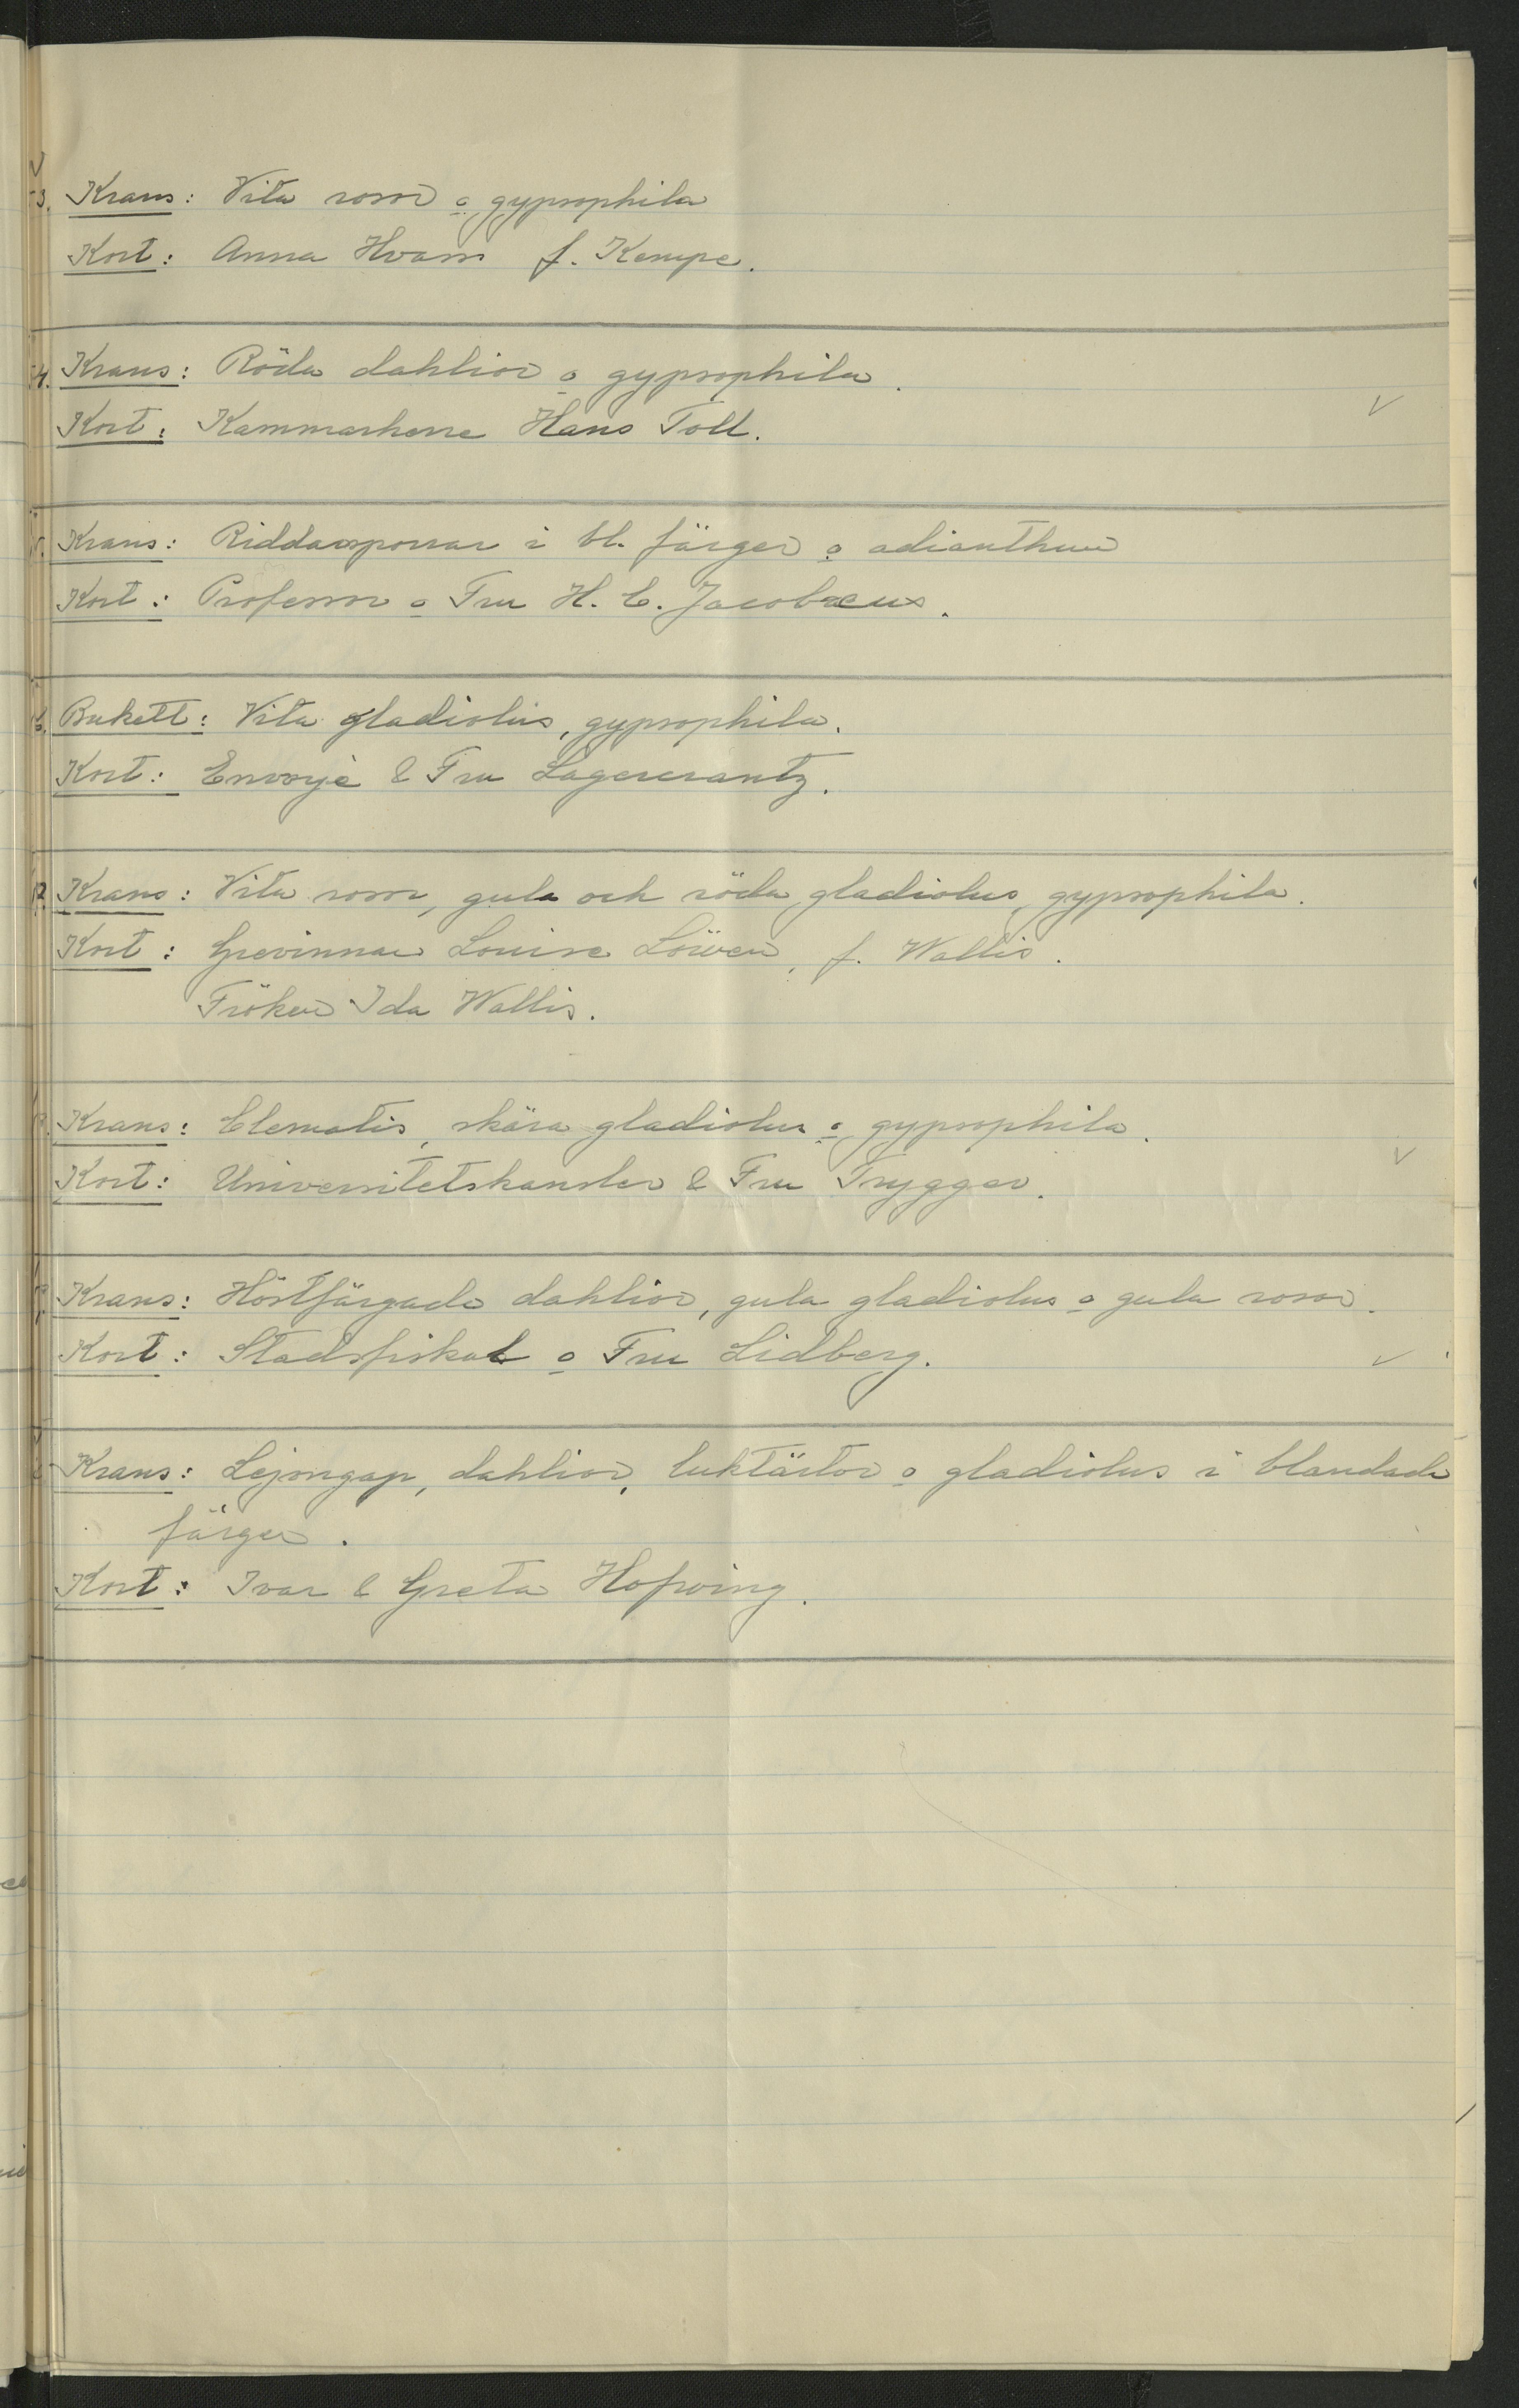 3. Krans: Vita rosor o gypsophila
Kort: Anna Hvass f. Kempe.
4. Krans: Röda dahlior o gypsophila.
Kort: Kammarherre Hans Toll.
Krans: Riddarsporrar i bl. färger o adianthum
Kort: Professor o Fru H. C. Jacobæus.
6. Bukett: Vita gladiolus, gypsophila.
Kort: Envoyé & Fru Lagercrantz.
7. Krans: Vita rosor, gula och röda gladiolus, gypsophila.
Kort: Grevinnan Louise Löwen, f. Wallis.
Fröken Ida Wallis.
Krans: Clematis, skära gladiolus o gypsophila.
Kort: Universitetskansler & Fru Trygger.
Krans: Höstfärgade dahlior, gula gladiolus o gula rosor.
Kort: Stadsfiskal o Fru Lidberg.
Krans: Lejongap, dahlior, luktärtor o gladiolus i blandade
färger.
Kort: Ivar & Greta Hofving.